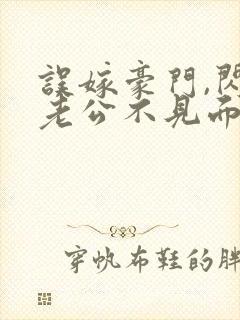 誤嫁豪門,閃
老公不見而
穿帆布鞋的胖